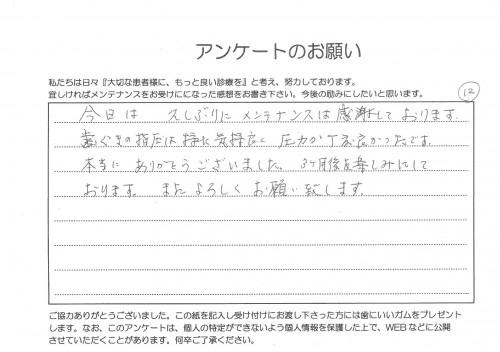 アンケートのお願い
私たちは日々『大切な患者様に、もっと良い診療を』と考え、努力しております。
宜しければメンテナンスをお受けになった感想をお書き下さい。今後の励みにしたいと思います。
12
今日は 久しぶりに メンテナンスは 感謝して おります.
歯ぐきの指圧は 特に気持良く 圧力が丁度良かったです。
本当に ありがとうございました。 3ヶ月後を楽しみにして
おります。 また よろしく お願い致します.
ご協力ありがとうございました。この紙を記入し受け付けにお渡し下さった方には歯にいいガムをプレゼント
します。なお、このアンケートは、個人の特定ができないよう個人情報を保護した上で、WEBなどに公開
させていただくことがあります。何卒ご了承ください。